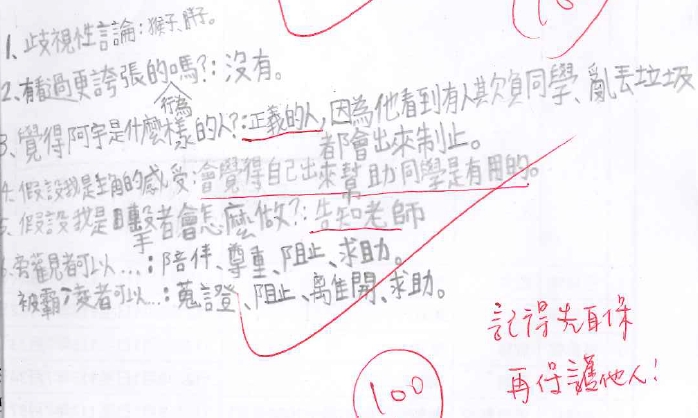 1、歧視性言論:猴子、胖子。
2、有看過更誇張的嗎?:沒有。
行為
3、覺得阿宇是什麼樣的人?:正義的人,因為他看到有人欺負同學、亂丟垃圾
都會出來制止。
4、假設我是主角的感受:會覺得自己出來幫助同學是有用的。
5、假設我是目擊者會怎麼做?:告知老師
手
6、旁觀者可以...:陪伴、尊重、阻止、求助。
被霸凌者可以...:蒐證、阻止、離開、求助。
記得先自保
再保護他人!
100